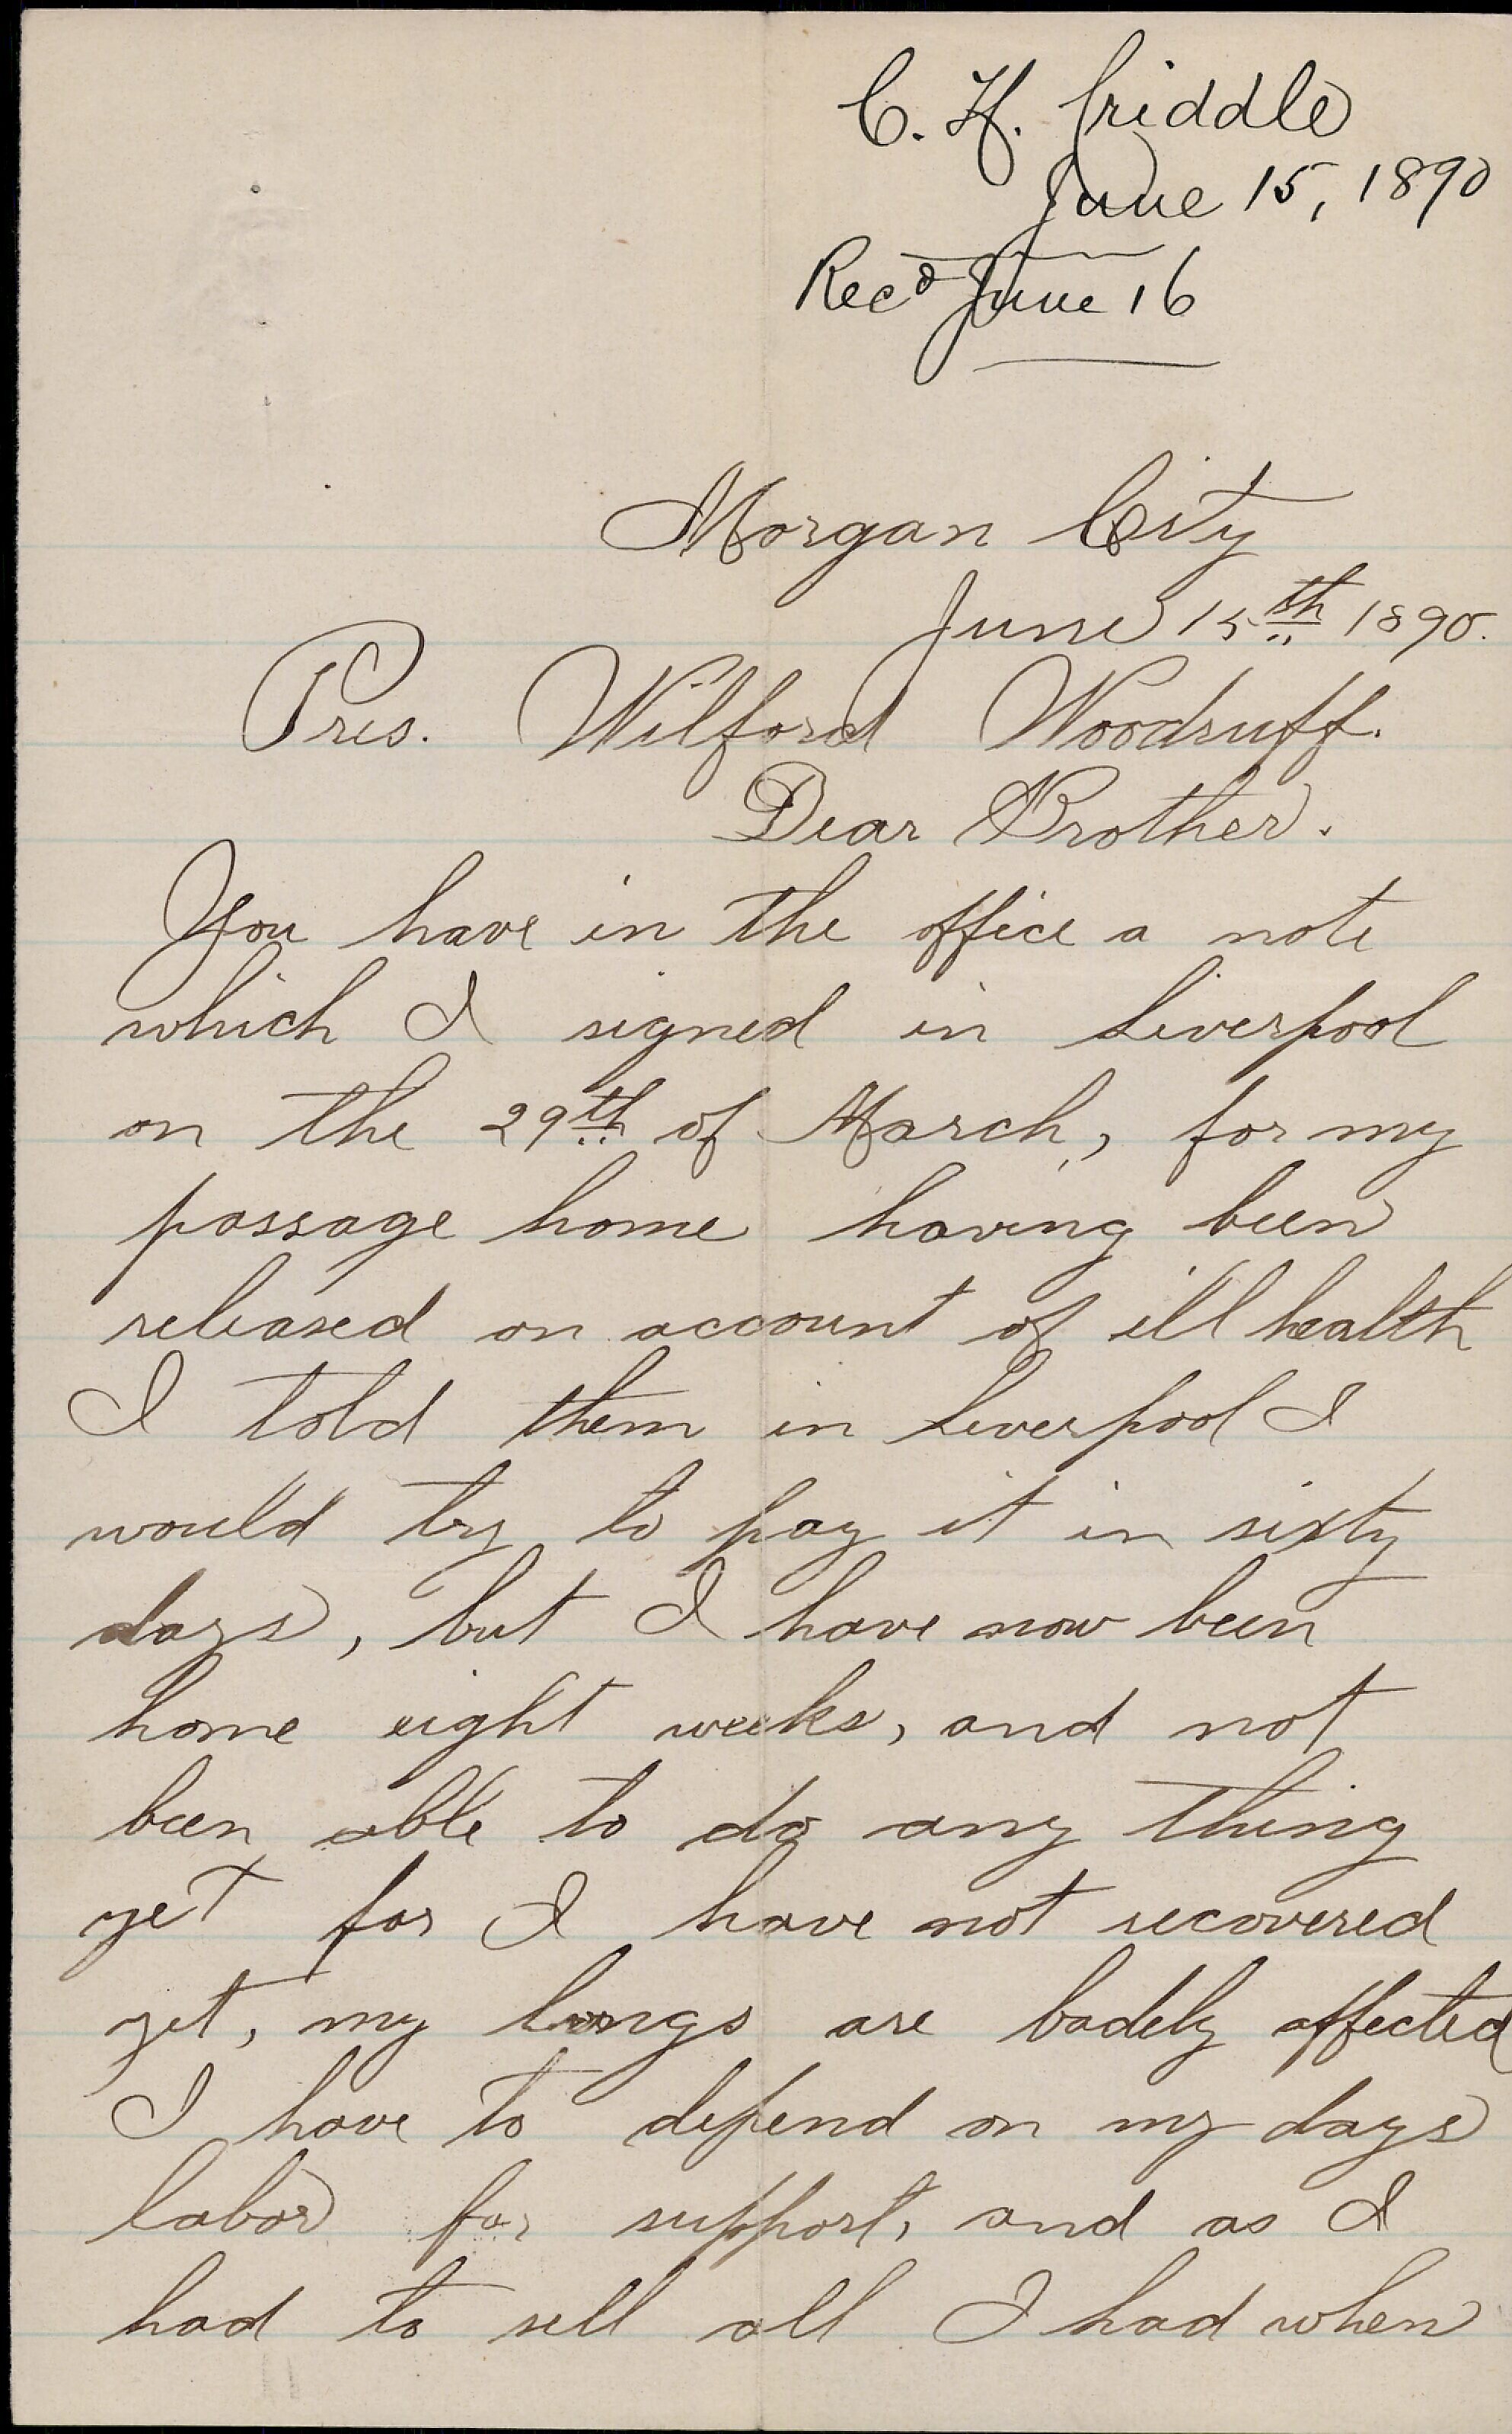 C. H. Criddle
June 15, 1890
Recd June 16
Morgan City
June 15th 1890.
Pres. Wilford Woodruff.
Dear Brother.
You have in the office a note
which I signed in Liverpool
on the 29th of March, for my
passage home having been
released on account of ill health
I told them in Liverpool I
would try to pay it in sixty
days, but I have now been
home eight weeks, and not
been able to do any thing
yet for I have not recovered
yet, my lungs are badely affected
I have to depend on my days
labor for support, and as I
had to sell all I had when